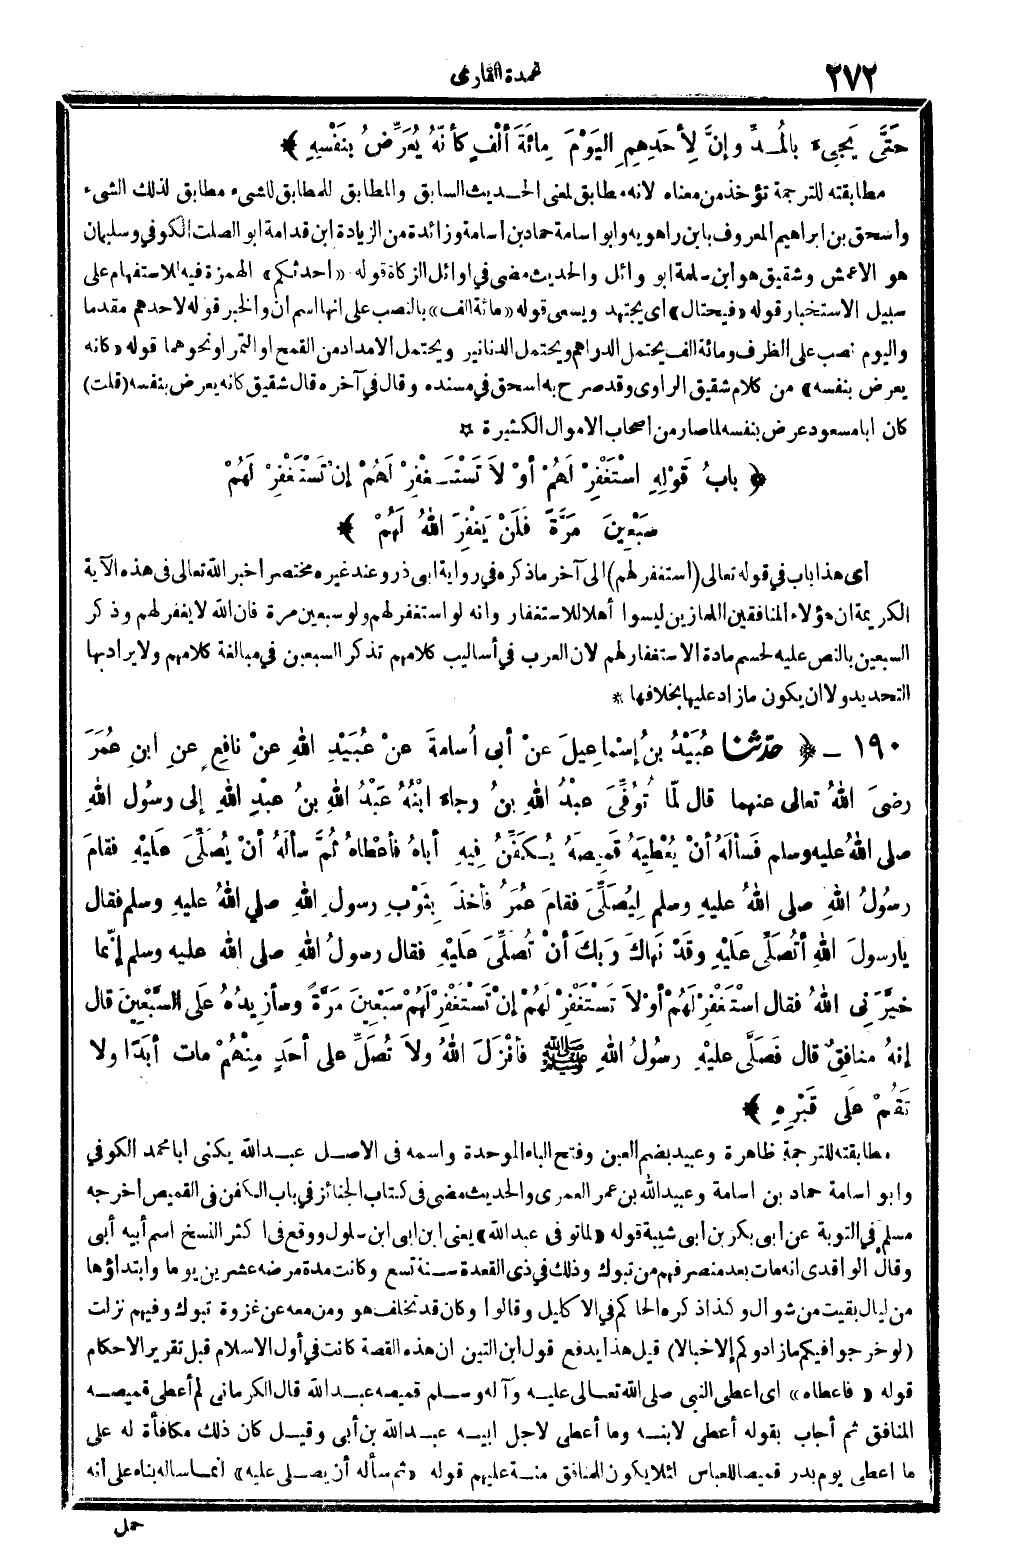 ٢٧٢
عمدة القارى
حَتَّى يَجِىءَ بالْمُدِّ وإنَّ لِأحَدِهِمِ اليَوْمَ مِائَةَ ألْفٍ كأنَّهُ يُعَرِّضُ بِنَفْسِهِ ﴾
مطابقته للترجمة تؤخذ من معناه لانه مطابق لمعنى الحديث السابق والمطابق للمطابق للشىء مطابق لذلك الشىء
وأسحق بن ابراهيم المعروف بابن راهويه وابو اسامة حماد بن أسامة وزائدة من الزيادة ابن قدامة ابو الصلت الكوفي وسليمان
هو الاعمش وشقيق هو ابن سلمة ابو وائل والحديث مضى في اوائل الزكاة قوله «أحدثكم» الهمزة فيه للاستفهام على
سبيل الاستخبار قوله «فيحتال» اى يجتهد ويسعى قوله «مائة الف» بالنصب على انها اسم ان والخبر قوله لاحدهم مقدما
واليوم نصب على الظرف ومائة الف يحتمل الدراهم ويحتمل الدنانير ويحتمل الامداد من القمح او التمر او نحوهما قوله «كانه
يعرض بنفسه» من كلام شقيق الراوى وقد صرح به اسحق في مسنده وقال في آخره قال شقيق كانه يعرض بنفسه (قلت)
كان ابا مسعود عرض بنفسه لما صار من اصحاب الاموال الكثيرة *
﴿ بابُ قَوْلِهِ اسْتَغْفِرْ لَهُمْ أوْ لاَ تَسْتَغْفِرْ لَهُمْ إنْ تَسْتَغْفِرْ لَهُمْ
سَبْعِينَ مَرَّةً فَلَنْ يَغْفِرَ اللهُ لَهُمْ ﴾
اى هذا باب في قوله تعالى (استغفر لهم) الى آخر ما ذكره في رواية ابى ذر وعند غيره مختصر أخبر الله تعالى فى هذه الآية
الكريمة ان هؤلاء المنافقين اللمازين ليسوا أهلا للاستغفار وانه لو استغفر لهم ولو سبعين مرة فان الله لا يغفر لهم وذكر
السبعين بالنص عليه لحسم مادة الاستغفار لهم لان العرب في أساليب كلامهم تذكر السبعين في مبالغة كلامهم ولا يراد بها
التحديد ولا ان يكون ما زاد عليها بخلافها *
١٩٠ ـ ﴿ حدّثنا عُبَيْدُ بنُ إسْماعِيلَ عنْ أبى أُسامةَ عنْ عُبَيْدِ اللهِ عنْ نافِعٍ عنِ ابنِ عُمَرَ
رضىَ اللهُ تعالى عنهما قال لَمّا تُوُفِّىَ عبْدُ اللهِ بنُ رجاء ابْنُهُ عَبْدُ اللهِ بنُ عبْدِ اللهِ إلى رسُول اللهِ
صلى اللهُ عليه وسلم فَسألَهُ أنْ يُعْطِيَهُ قَمِيصَهُ يُكَفِّنُ فِيهِ أباهُ فأعْطاهُ ثُمَّ سألَهُ أنْ يُصَلِّىَ عَلَيْهِ فقامَ
رسُولُ اللهِ صلى اللهُ عليهِ وسلم لِيُصَلِّىَ فقامَ عُمَرُ فأخذَ بِثَوْبِ رسولِ اللهِ صلى اللهُ عليهِ وسلم فقال
يارسولَ اللهِ أتُصَلِّى عَلَيْهِ وقَدْ نَهاكَ رَبكَ أنْ تُصَلِّىَ عَلَيْهِ فقال رسولُ اللهِ صلى الله عليه وسلم إنّما
خيَّرَنِى اللهُ فقال اسْتَغْفِرْ لَهُمْ أوْ لاَ تَسْتَغْفِرْ لَهُمْ إنْ تَسْتَغْفِرْ لَهُمْ سَبْعِينَ مَرَّةً وسأزيدُهُ عَلَى السَّبْعِينَ قال
إنهُ منافِقٌ قال فَصَلَّى عليْهِ رسُولُ اللهِ ﷺ فأنْزَلَ اللهُ ولاَ تُصَلِّ على أحَدٍ مِنْهُمْ مات أبَدًا ولا
تَقُمْ عَلَى قَبْرِهِ ﴾
مطابقته للترجمة ظاهرة وعبيد بضم العين وفتح الباء الموحدة واسمه فى الاصل عبد الله يكنى ابا محمد الكوفي
وابو اسامة حماد بن اسامة وعبيد الله بن عمر العمرى والحديث مضى فى كتاب الجنائز في باب الكفن فى القميص أخرجه
مسلم في التوبة عن ابى بكر بن ابى شيبة قوله «لما توفى عبد الله» يعنى ابن ابى ابن سلول ووقع فى اكثر النسخ اسم أبيه أبى
وقال الواقدى انه مات بعد منصرفهم من تبوك وذلك في ذى القعدة سنة تسع وكانت مدة مرضه عشرين يوما وابتداؤها
من ليال بقيت من شوال وكذا ذكره الحاكم في الاكليل وقالوا وكان قد تخلف هو ومن معه عن غزوة تبوك وفيهم نزلت
(لو خرجوا فيكم ما زادوكم إلا خبالا) قيل هذا يدفع قول ابن التين ان هذه القصة كانت في أول الاسلام قبل تقرير الاحكام
قوله «فاعطاه» اى اعطى النبى صلى الله تعالى عليه وآله وسلم قميصه عبد الله قال الكرمانى لم أعطى قميصه
المنافق ثم أجاب بقوله أعطى لابنه وما أعطى لاجل ابيه عبد الله بن أبى وقيل كان ذلك مكافأة له على
ما اعطى يوم بدر قميصا للعباس لئلا يكون للمنافق منة عليهم قوله «ثم سأله أن يصلى عليه» انما ساله بناء على أنه
حمل